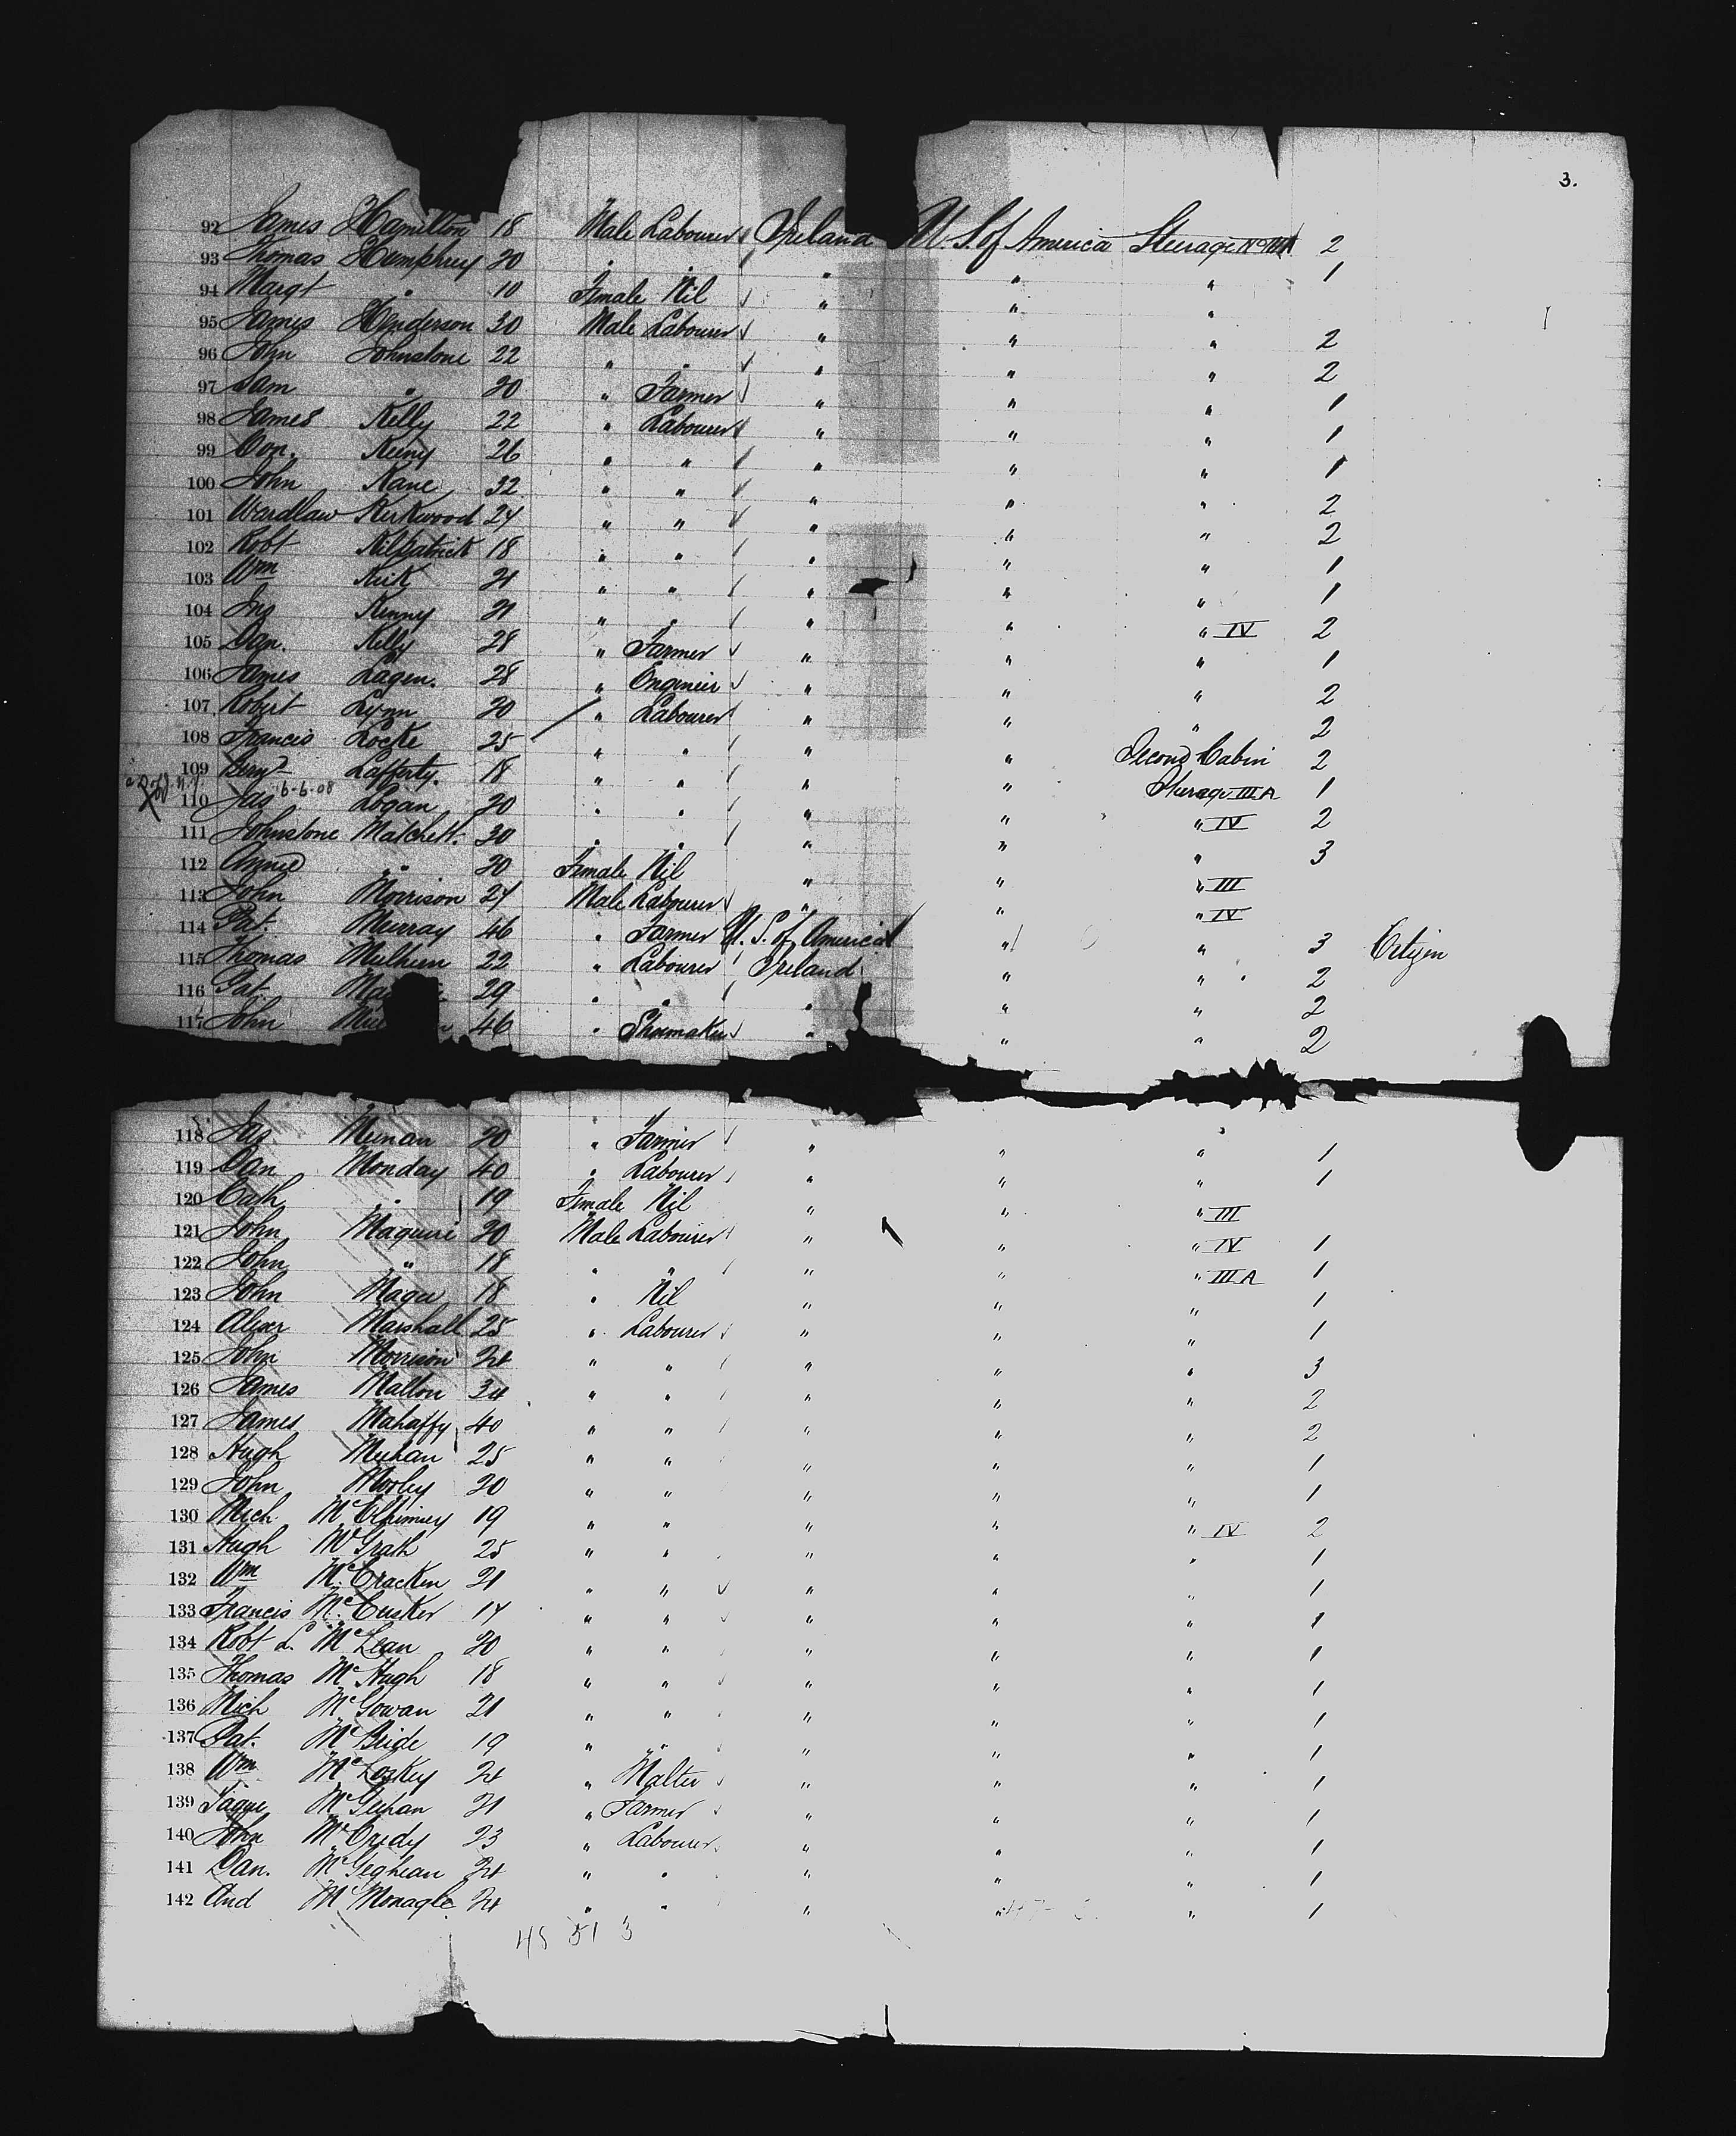 3.
92 James Hamilton 18 Male Labourer Ireland U. S. of America Steerage No IIIA 2
93 Thomas Humphrey 20 " " " " " 1
94 Margt " 10 Female Nil " " "
95 James Henderson 30 Male Labourer " " " 2
96 John Johnstone 22 " " " " " 2
97 Sam " 20 " Farmer " " " 1
98 James Kelly 22 " Labourer " " " 1
99 Con. Keeny 26 " " " " " 1
100 John Kane 32 " " " " " 2
101 Wardlaw Kirkwood 24 " " " " " 2
102 Robt Kilpatrick 18 " " " " " 1
103 Wm 21 " " " " " 1
104 Jno Kenny 21 " " " " " IV 2
105 Dan. Kelly 28 " Farmer " " " 1
106 James Lagen. 28 " Engineer " " " 2
107 Robert Lynn 20 " Labourer " " " 2
108 Francis Locke 25 " " " " Second Cabin 2
109 Benj Lafferty. 18 " " " " Steerage IIIA 1
6-6-08
110 Jas Logan 20 " " " " " IV 2
111 Johnstone Matchett. 30 " " " " " 3
112 Annie " 20 Female Nil " " " III
113 John Morrison 24 Male Labourer " " " IV
114 Pat. Murray 46 " Farmer U. S. of America " " 3 Citizen
115 Thomas Mulhern 22 " Labourer Ireland " " 2
116 Pat. 29 " " " " " 2
117 John 46 " Shoemaker " " " 2
118 Jas Meenan 20 " Farmer " " " 1
119 Dan Monday 40 " Labourer " " " 1
120 Cath " 19 Female Nil " " " III
121 John Maguire 20 Male Labourer " " " IV 1
122 John " 18 " " " " " IIIA 1
123 John Magee 18 " Nil " " " 1
124 Alexr Marshall 25 " Labourer " " " 1
125 John Morrison 24 " " " " " 3
126 James Mallon 34 " " " " " 2
127 James Mahaffy 40 " " " " " 2
128 Hugh Meehan 25 " " " " " 1
129 John Morley 20 " " " " " 1
130 Mich McElhinney 19 " " " " " IV 2
131 Hugh McGrath 25 " " " " " 1
132 Wm McCracken 21 " " " " " 1
133 Francis McCusker 17 " " " " " 1
134 Robt L. McLean 20 " " " " " 1
135 Thomas McHugh 18 " " " " " 1
136 Mich McGowan 21 " " " " " 1
137 Pat. McBride 19 " " " " " 1
138 Wm McLoskey 24 " Malter " " " 1
139 Teague McGeehan 21 " Farmer " " " 1
140 John McCredy 23 " Labourer " " " 1
141 Dan. McGeghean 24 " " " " " 1
142 And McMonagle 24 " " " " " 1
48 51 3